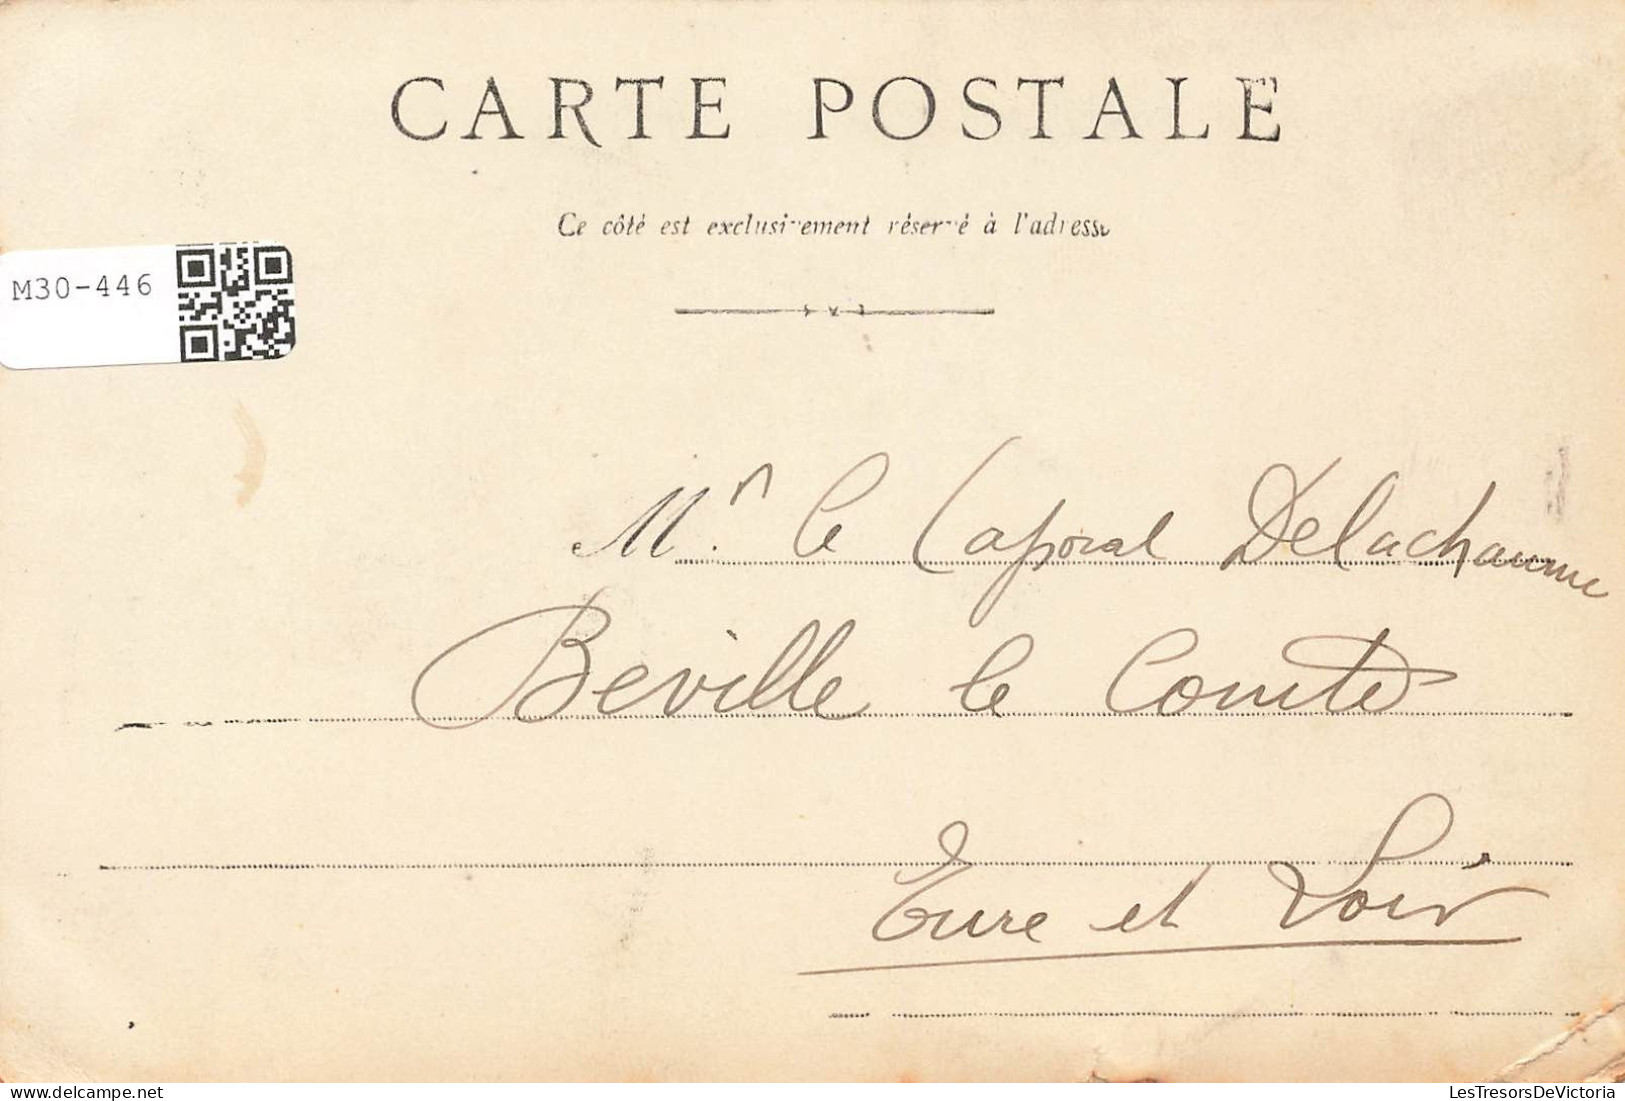 CARTE POSTALE
Ce côté est exclusivement réservé à l'adresse
M30-446
Mr. le Caporal Delachaume
Beville le Comte
Eure et Loir
LesTresorsDeVictoria